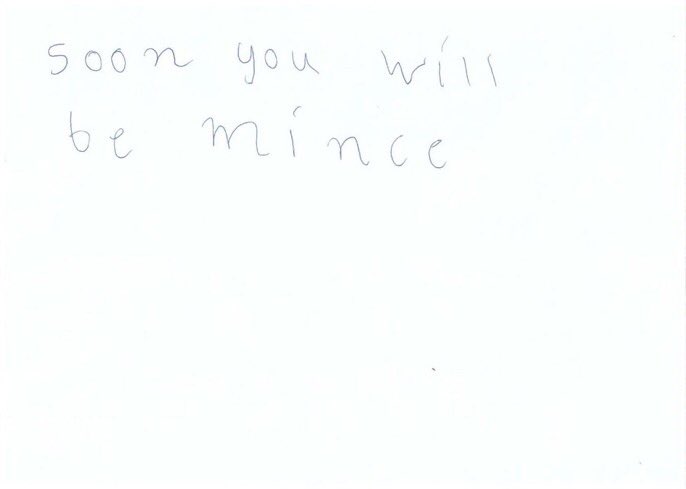 soon you will
be mince